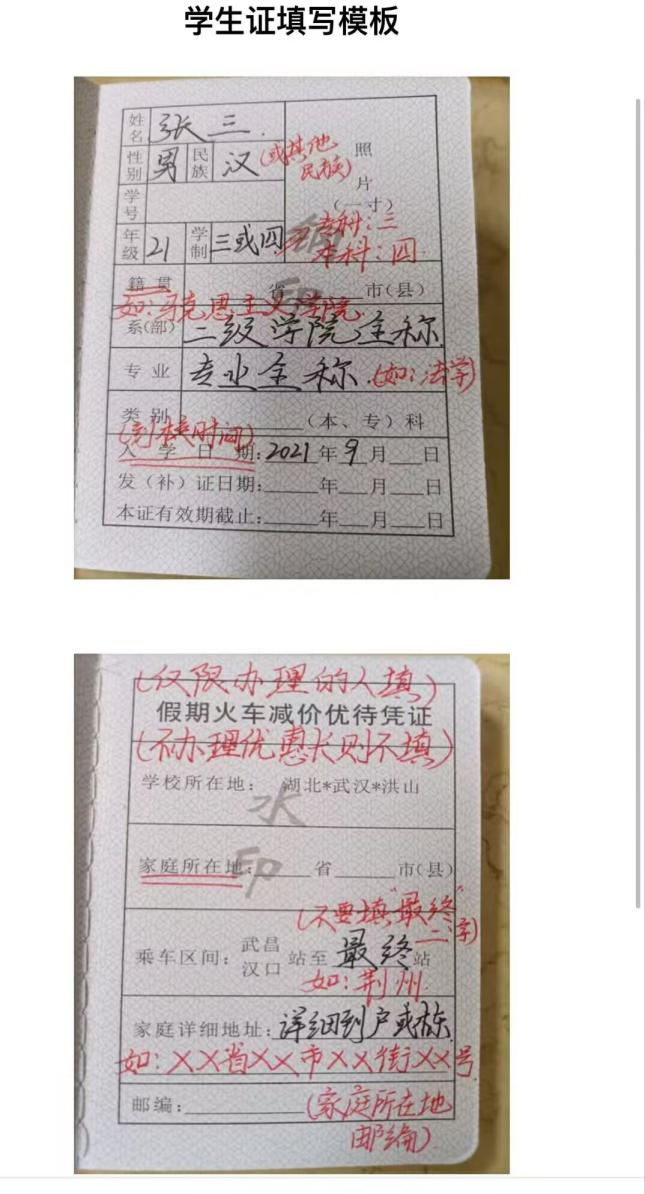 学生证填写模板
姓名 张三
性别 男 民族 汉 (或其他民族) 照
片
学号 (一寸)
年级 21 学制 三或四 专科:三
本科:四
籍贯 省 市(县)
如:马克思主义学院
系(部) 二级学院全称
专业 专业全称 (如:法学)
类别 (本、专)科
(到校时间)
入学日期:2021年9月 日
发(补)证日期: 年 月 日
本证有效期截止: 年 月 日
(仅限办理的人填)
假期火车减价优待凭证
(不办理优惠卡则不填)
学校所在地: 湖北*武汉*洪山
水
家庭所在地: 省 市(县)
印
(不要填“最终”二字)
乘车区间: 武昌 汉口 站至 最终 站
如:荆州
家庭详细地址: 详细到户或栋
如:××省××市××街××号
邮编: (家庭所在地
邮编)